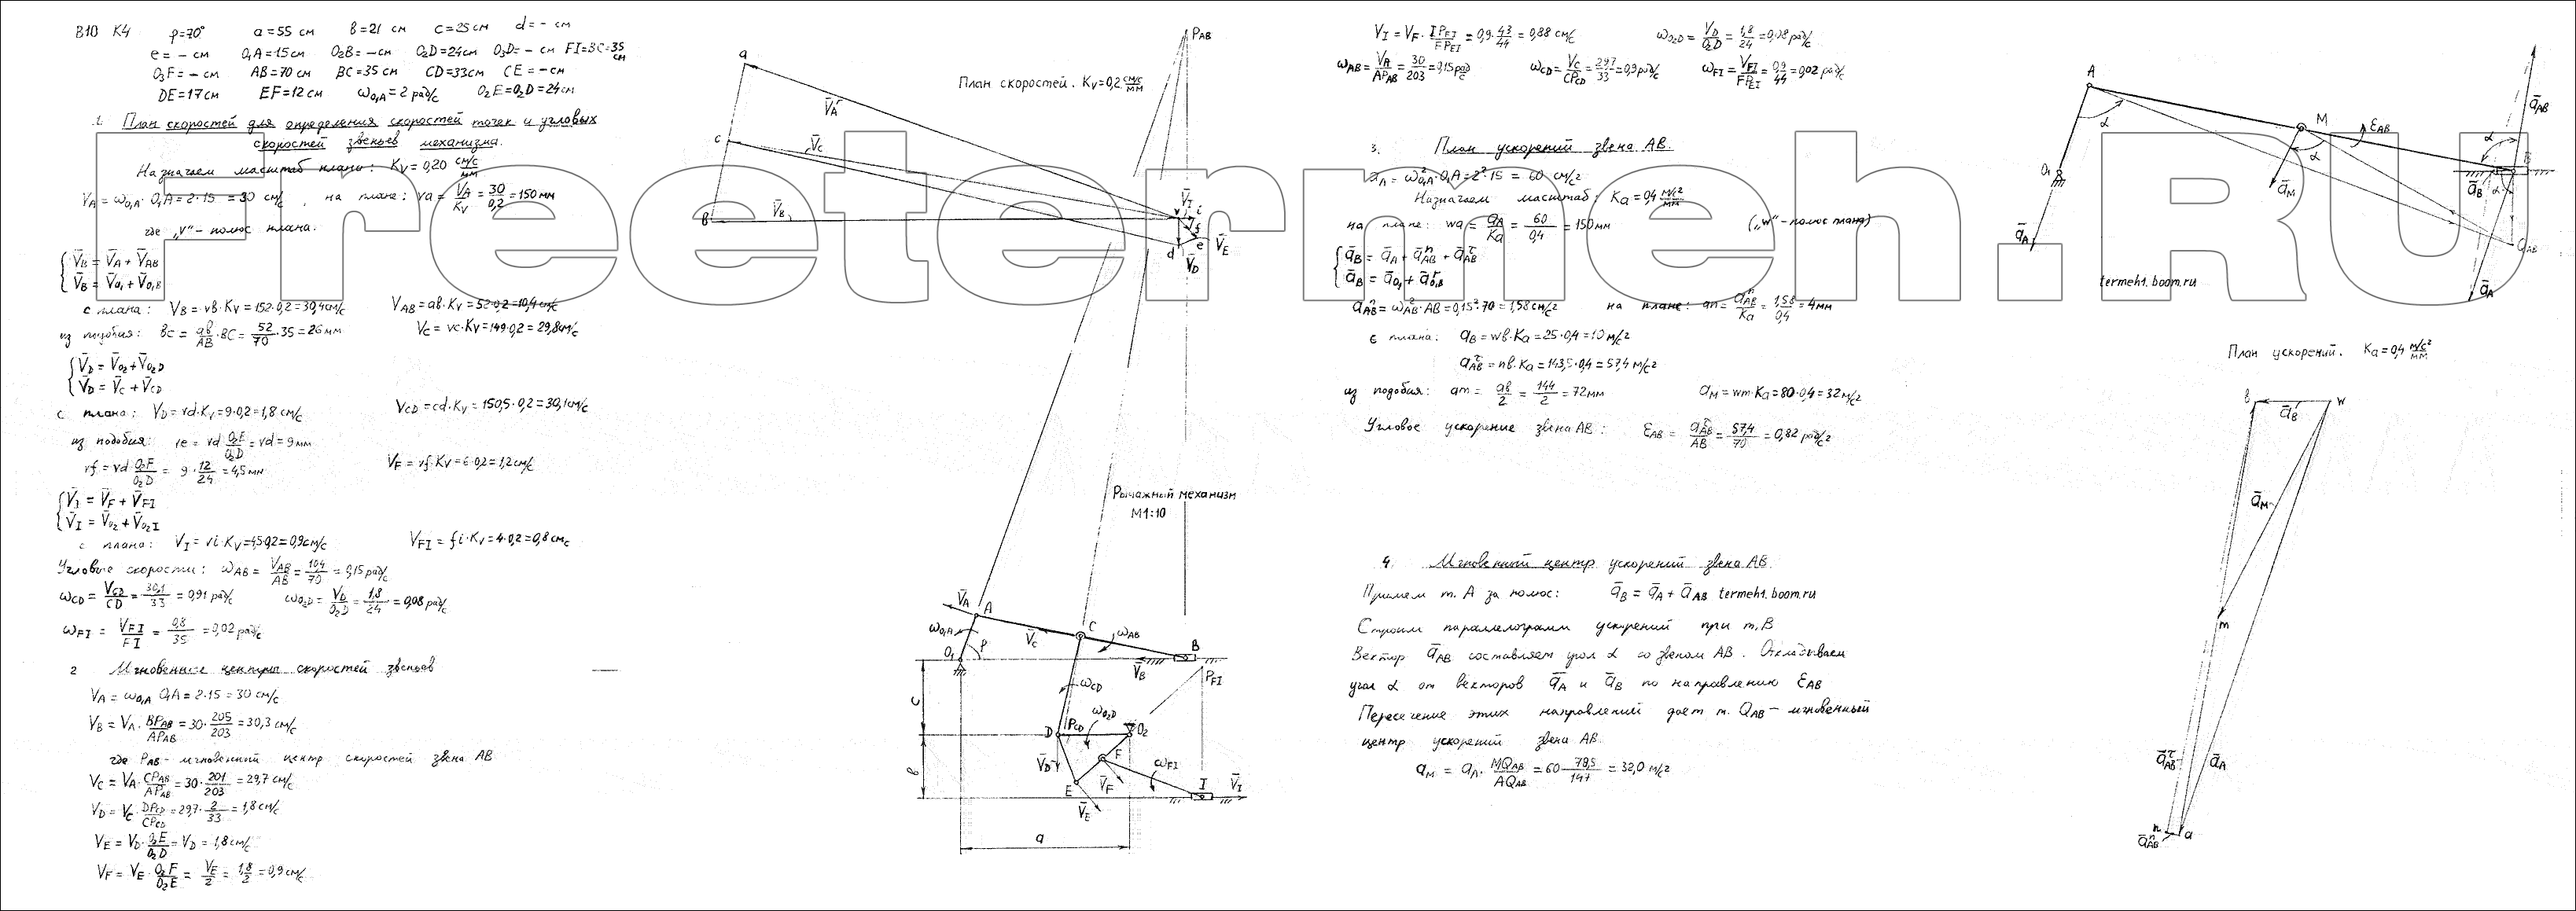 В10 К4 φ=70° a=55 см в=21 см c=25 см d=– см
e=– см O₁A=15см O₂B=–см O₂D=24см O₃D=– см FI=BC=35 см
O₃F=– см AB=70 см BC=35 см CD=33см CE=–см
DE=17см EF=12см ω_O₁A=2 рад/с O₂E=O₂D=24см
1. План скоростей для определения скоростей точек и угловых
скоростей звеньев механизма.
Назначаем масштаб плана: K_V=0,20 (см/с)/мм
V_A=ω_O₁A·O₁A=2·15=30 см/с, на плане: va=V_A/K_V=30/0,2=150мм
где „v"- полюс плана.
V̄_B=V̄_A+V̄_AB
V̄_B=V̄_O₁+V̄_O₁B
с плана: V_B=vв·K_V=152·0,2=30,4см/с V_AB=aв·K_V=52·0,2=10,4см/с
из подобия: вc=aв/AB·BC=52/70·35=26мм V_C=vc·K_V=149·0,2=29,8см/с
V̄_D=V̄_O₂+V̄_O₂D
V̄_D=V̄_C+V̄_CD
с плана: V_D=vd·K_V=9·0,2=1,8см/с V_CD=cd·K_V=150,5·0,2=30,1см/с
из подобия: ve=vd O₂E/O₂D=vd=9мм
vf=vd·O₂F/O₂D=9·12/24=4,5мм V_F=vf·K_V=6·0,2=1,2см/с
V̄_I=V̄_F+V̄_FI
V̄_I=V̄_O₂+V̄_O₂I
с плана: V_I=vi·K_V=4,5·0,2=0,9см/с V_FI=fi·K_V=4·0,2=0,8см/с
Угловые скорости: ω_AB=V_AB/AB=10,4/70=0,15рад/с
ω_CD=V_CD/CD=30,1/33=0,91рад/с ω_O₂D=V_D/O₂D=1,8/24=0,08рад/с
ω_FI=V_FI/FI=0,8/35=0,02рад/с
2 Мгновенные центры скоростей звеньев
V_A=ω_O₁A·O₁A=2·15=30см/с
V_B=V_A·BP_AB/AP_AB=30·205/203=30,3см/с
где P_AB- мгновенный центр скоростей звена АВ
V_C=V_A·CP_AB/AP_AB=30·201/203=29,7см/с
V_D=V_C·DP_CD/CP_CD=29,7·2/33=1,8см/с
V_E=V_D·O₂E/O₂D=V_D=1,8см/с
V_F=V_E·O₂F/O₂E=V_E/2=1,8/2=0,9см/с
План скоростей. K_V=0,2 (см/с)/мм
P_AB
a
c
в
V̄_A
V̄_C
V̄_B
V̄_I
v i
f
e
V̄_E
d
V̄_D
Рычажный механизм
М1:10
V̄_A A
ω_O₁A
O₁ φ
V̄_C
C
ω_AB
B
V̄_B
P_FI
ω_CD
c
D P_CD
ω_O₂D
O₂
в
V̄_D
F
ω_FI
E
V̄_F
V̄_E
I V̄_I
a
V_I=V_F·IP_FI/FP_FI=0,9·43/44=0,88см/с ω_O₂D=V_D/O₂D=1,8/24=0,08рад/с
ω_AB=V_A/AP_AB=30/203=0,15рад/с ω_CD=V_C/CP_CD=29,7/33=0,9рад/с ω_FI=V_FI/FP_FI=0,9/44=0,02рад/с
3. План ускорений звена АВ.
a_A=ω²_O₁A·O₁A=2²·15=60 см/с²
Назначаем масштаб: K_a=0,4 (м/с²)/мм
на плане: wa=a_A/K_a=60/0,4=150мм („w"-полюс плана)
ā_B=ā_A+ā^n_AB+ā^τ_AB
ā_B=ā_O₁+ā^τ_O₁B
a^n_AB=ω²_AB·AB=0,15²·70=1,58см/с² на плане: an=a^n_AB/K_a=1,58/0,4=4мм
с плана: a_B=wв·K_a=25·0,4=10м/с²
a^τ_AB=nв·K_a=143,5·0,4=57,4м/с²
из подобия: am=aв/2=144/2=72мм a_M=wm·K_a=80·0,4=32м/с²
Угловое ускорение звена АВ: ε_AB=a^τ_AB/AB=57,4/70=0,82рад/с²
4. Мгновенный центр ускорений звена АВ.
Примем т. А за полюс: ā_B=ā_A+ā_AB termeh1.boom.ru
Строим параллелограмм ускорений при т.В
Вектор ā_AB составляет угол α со звеном АВ. Откладываем
угол α от векторов ā_A и ā_B по направлению ε_AB
Пересечение этих направлений дает т. Q_AB- мгновенный
центр ускорений звена АВ.
a_M=a_A·MQ_AB/AQ_AB=60·78,5/147=32,0м/с²
A
α
O₁
ā_A
M
ε_AB
ā_M
α
ā_AB
α
ā_B
α
Q_AB
ā_A
termeh1.boom.ru
План ускорений. K_a=0,4 (м/с²)/мм
в
ā_B
w
ā_M
m
ā^τ_AB
ā_A
n
a
ā^n_AB
Freetermeh.RU